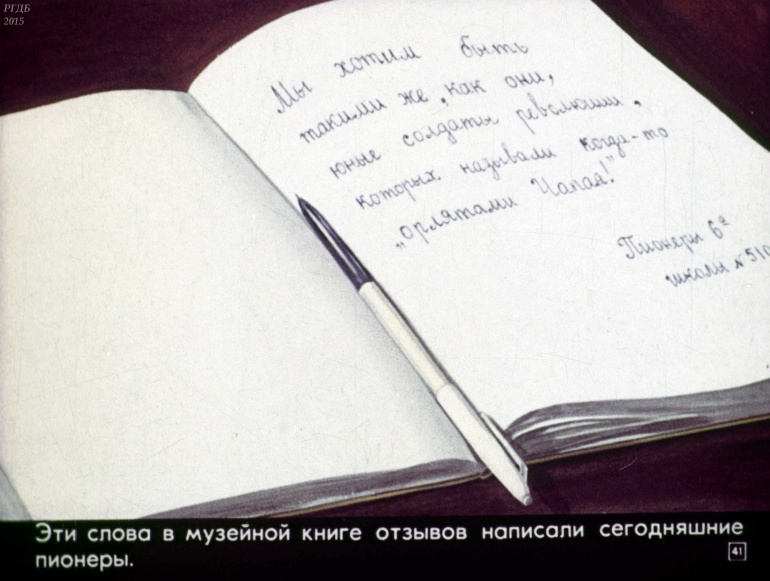 РГДБ
2015
Мы хотим быть
такими же, как они,
юные солдаты революции,
которых называли когда-то
„орлятами Чапая!"
Пионеры 6ª
школы № 510
Эти слова в музейной книге отзывов написали сегодняшние
пионеры.
41